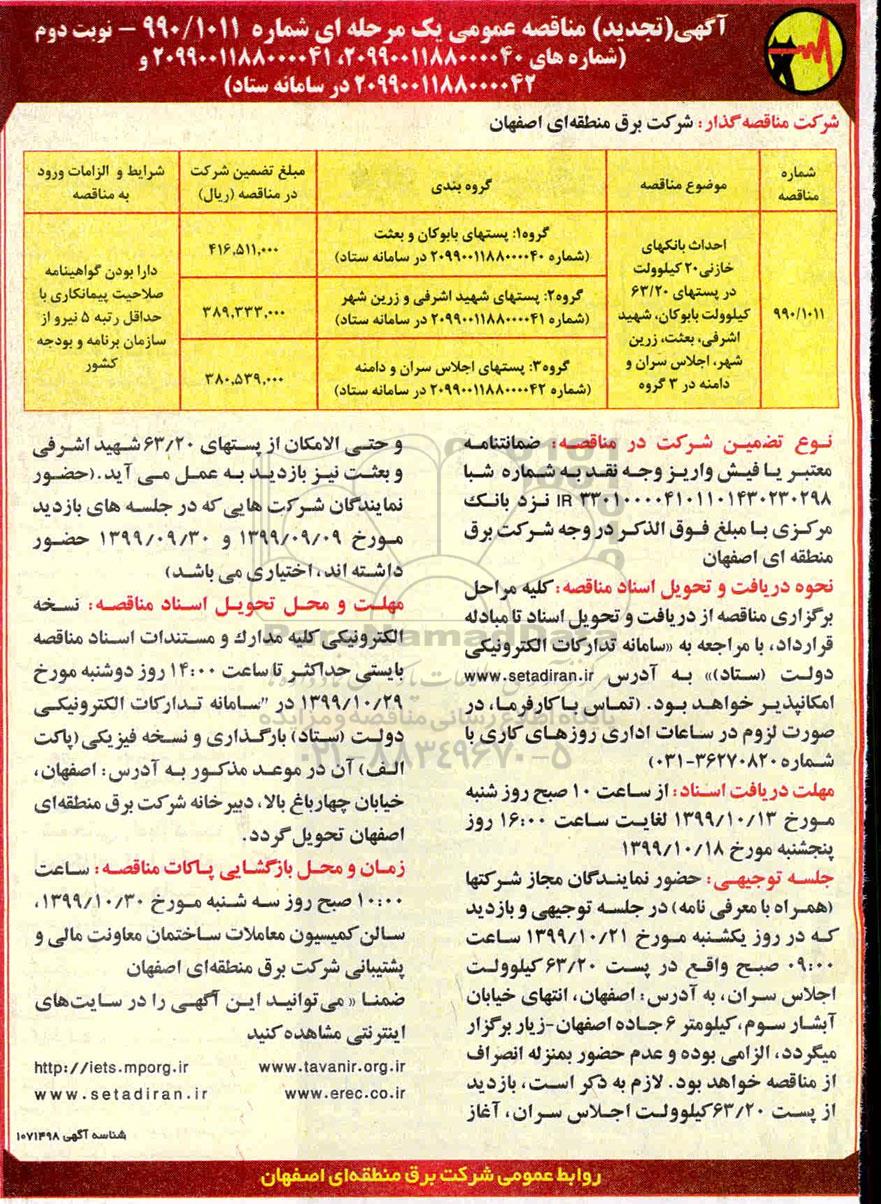 آگهی(تجدید) مناقصه عمومی یک مرحله ای شماره ۹۹۰/۱۰۱۱ – نوبت دوم
(شماره های ۲۰۹۹۰۰۱۱۸۸۰۰۰۰۴۰، ۲۰۹۹۰۰۱۱۸۸۰۰۰۰۴۱ و
۲۰۹۹۰۰۱۱۸۸۰۰۰۰۴۲ در سامانه ستاد)
شرکت مناقصه گذار: شرکت برق منطقه‌ای اصفهان
شماره مناقصه
موضوع مناقصه
گروه بندی
مبلغ تضمین شرکت در مناقصه (ریال)
شرایط و الزامات ورود به مناقصه
۹۹۰/۱۰۱۱
احداث بانکهای
خازنی۲۰ کیلوولت
در پستهای ۶۳/۲۰
کیلوولت بابوکان، شهید
اشرفی، بعثت، زرین
شهر، اجلاس سران و
دامنه در ۳ گروه
گروه۱: پستهای بابوکان و بعثت
(شماره ۲۰۹۹۰۰۱۱۸۸۰۰۰۰۴۰ در سامانه ستاد)
۴۱۶,۵۱۱,۰۰۰
گروه۲: پستهای شهید اشرفی و زرین شهر
(شماره ۲۰۹۹۰۰۱۱۸۸۰۰۰۰۴۱ در سامانه ستاد)
۳۸۹,۳۳۳,۰۰۰
گروه۳: پستهای اجلاس سران و دامنه
(شماره ۲۰۹۹۰۰۱۱۸۸۰۰۰۰۴۲ در سامانه ستاد)
۳۸۰,۵۳۹,۰۰۰
دارا بودن گواهینامه
صلاحیت پیمانکاری با
حداقل رتبه ۵ نیرو از
سازمان برنامه و بودجه
کشور
نوع تضمین شرکت در مناقصه: ضمانتنامه
معتبر یا فیش واریز وجه نقد به شماره شبا
IR ۳۳۰۱۰۰۰۰۴۱۰۱۱۰۱۴۳۰۲۳۰۲۹۸ نزد بانک
مرکزی با مبلغ فوق الذکر در وجه شرکت برق
منطقه ای اصفهان
نحوه دریافت و تحویل اسناد مناقصه: کلیه مراحل
برگزاری مناقصه از دریافت و تحویل اسناد تا مبادله
قرارداد، با مراجعه به «سامانه تدارکات الکترونیکی
دولت (ستاد)» به آدرس www.setadiran.ir
امکانپذیر خواهد بود. (تماس با کارفرما، در
صورت لزوم در ساعات اداری روزهای کاری با
شماره ۳۶۲۷۰۸۲۰-۰۳۱)
مهلت دریافت اسناد: از ساعت ۱۰ صبح روز شنبه
مورخ ۱۳۹۹/۱۰/۱۳ لغایت ساعت ۱۶:۰۰ روز
پنجشنبه مورخ ۱۳۹۹/۱۰/۱۸
جلسه توجیهی: حضور نمایندگان مجاز شرکتها
(همراه با معرفی نامه) در جلسه توجیهی و بازدید
که در روز یکشنبه مورخ ۱۳۹۹/۱۰/۲۱ ساعت
۰۹:۰۰ صبح واقع در پست ۶۳/۲۰ کیلوولت
اجلاس سران، به آدرس: اصفهان، انتهای خیابان
آبشار سوم، کیلومتر ۶ جاده اصفهان-زیار برگزار
میگردد، الزامی بوده و عدم حضور بمنزله انصراف
از مناقصه خواهد بود. لازم به ذکر است، بازدید
از پست ۶۳/۲۰کیلوولت اجلاس سران، آغاز
و حتی الامکان از پستهای ۶۳/۲۰ شهید اشرفی
و بعثت نیز بازدید به عمل می آید.(حضور
نمایندگان شرکت هایی که در جلسه های بازدید
مورخ ۱۳۹۹/۰۹/۰۹ و ۱۳۹۹/۰۹/۳۰ حضور
داشته اند، اختیاری می باشد)
مهلت و محل تحویل اسناد مناقصه: نسخه
الکترونیکی کلیه مدارك و مستندات اسناد مناقصه
بایستی حداکثر تا ساعت ۱۴:۰۰ روز دوشنبه مورخ
۱۳۹۹/۱۰/۲۹ در "سامانه تدارکات الکترونیکی
دولت (ستاد) بارگذاری و نسخه فیزیکی (پاکت
الف) آن در موعد مذکور به آدرس: اصفهان،
خیابان چهارباغ بالا، دبیرخانه شرکت برق منطقه‌ای
اصفهان تحویل گردد.
زمان و محل بازگشایی پاکات مناقصه: ساعت
۱۰:۰۰ صبح روز سه شنبه مورخ ۱۳۹۹/۱۰/۳۰،
سالن کمیسیون معاملات ساختمان معاونت مالی و
پشتیبانی شرکت برق منطقه‌ای اصفهان
ضمنا « می توانید این آگهی را در سایت‌های
اینترنتی مشاهده کنید
http://iets.mporg.ir www.tavanir.org.ir
www.setadiran.ir www.erec.co.ir
شناسه آگهی ۱۰۷۱۴۹۸
روابط عمومی شرکت برق منطقه‌ای اصفهان
ParsNamadData
پایگاه اطلاع رسانی مناقصه و مزایده
۰۲۱-۸۸۳۴۹۶۷۰-۵